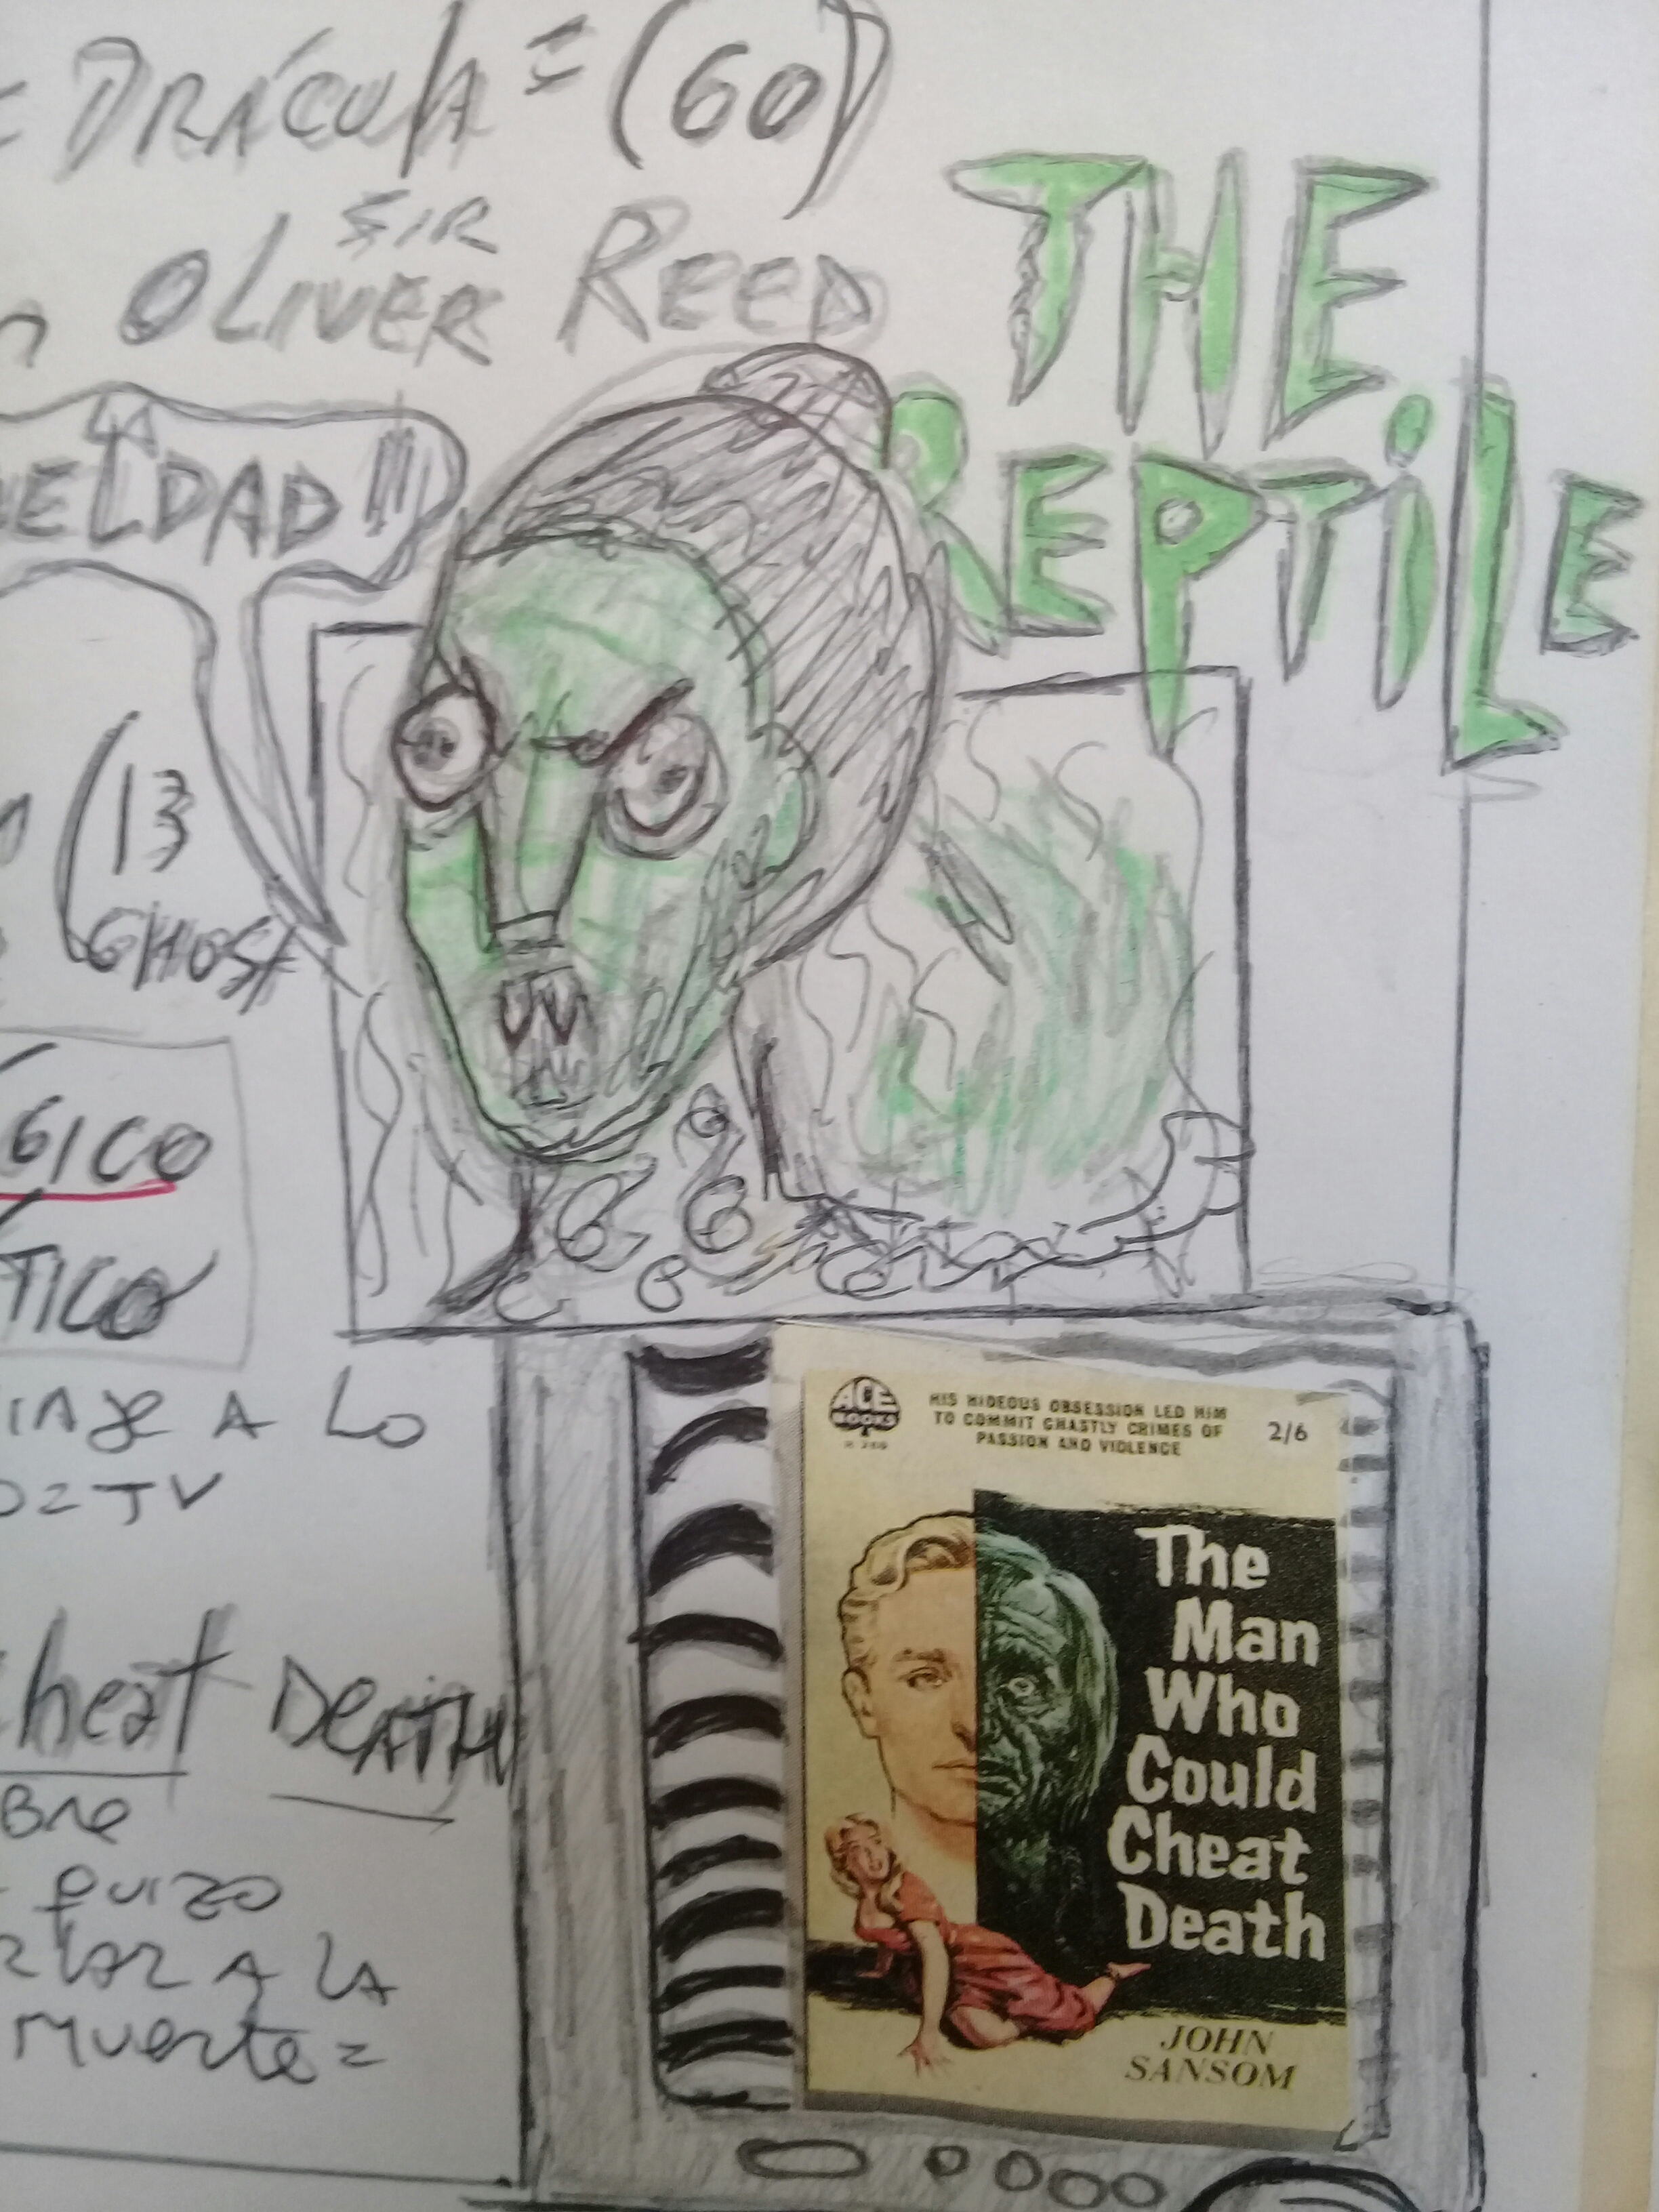 = DRÁCULA = (60)
SIR
OLIVER REED
THE
REPTiLE
ELDAD !!!
(13
GHOST
GICO
TICO
A LO
TV
heat DEATH
BRE
quizo
A LA
MUERTE =
ACE
BOOKS
HIS HIDEOUS OBSESSION LED HIM
TO COMMIT GHASTLY CRIMES OF
PASSION AND VIOLENCE
2/6
The
Man
Who
Could
Cheat
Death
JOHN
SANSOM